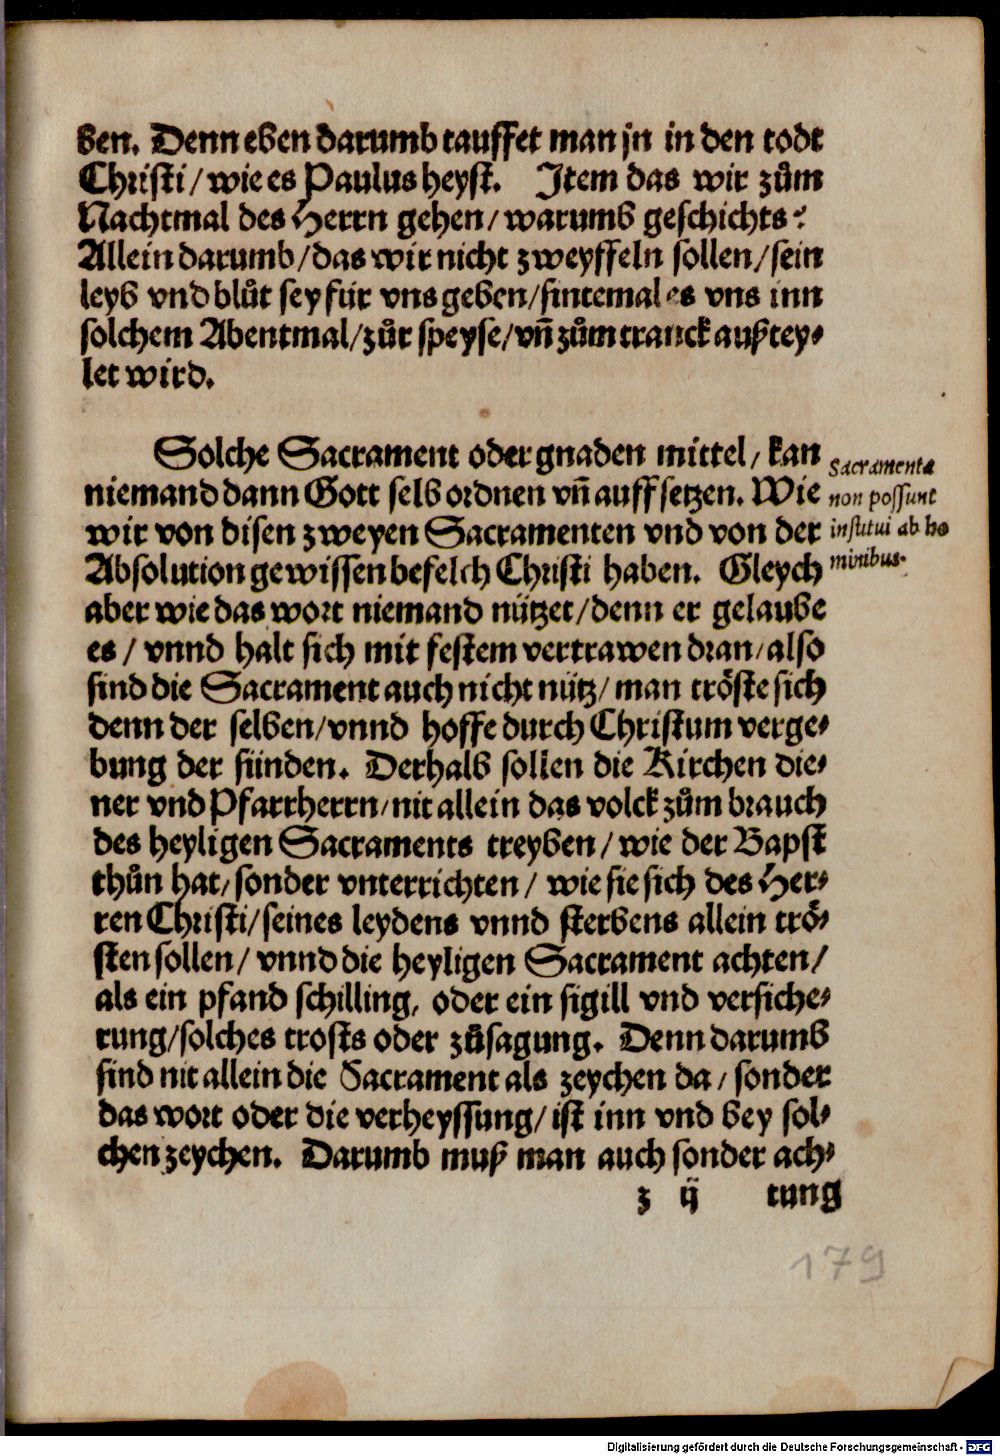 ben. Denn eben darumb tauffet man jn in den todt
Christi / wie es Paulus heyst. Item das wir zům
Nachtmal des Herrn gehen / warumb geschichts?
Allein darumb / das wir nicht zweyffeln sollen / sein
leyb vnd blůt sey für vns geben / sintemal es vns inn
solchem Abentmal / zůr speyse / vñ zům tranck außtey⸗
let wird.
Solche Sacrament oder gnaden mittel / kan
niemand dann Gott selb ordnen vñ auffsetzen. Wie
wir von disen zweyen Sacramenten vnd von der
Absolution gewissen befelch Christi haben. Gleych
aber wie das wort niemand nützet / denn er gelaube
es / vnnd halt sich mit festem vertrawen dran / also
sind die Sacrament auch nicht nütz / man tröste sich
denn der selben / vnnd hoffe durch Christum verge⸗
bung der sünden. Derhalb sollen die Kirchen die⸗
ner vnd Pfarrherrn / nit allein das volck zům brauch
des heyligen Sacraments treyben / wie der Bapst
thůn hat / sonder vnterrichten / wie sie sich des Her⸗
ren Christi / seines leydens vnnd sterbens allein trö⸗
sten sollen / vnnd die heyligen Sacrament achten /
als ein pfand schilling, oder ein sigill vnd versiche⸗
rung / solches trosts oder zůsagung. Denn darumb
sind nit allein die Sacrament als zeychen da / sonder
das wort oder die verheyssung / ist inn vnd bey sol⸗
chen zeychen. Darumb muß man auch sonder ach⸗
z ij tung
Sacramenta
non possunt
institui ab ho
minibus.
179
Digitalisierung gefördert durch die Deutsche Forschungsgemeinschaft - DFG